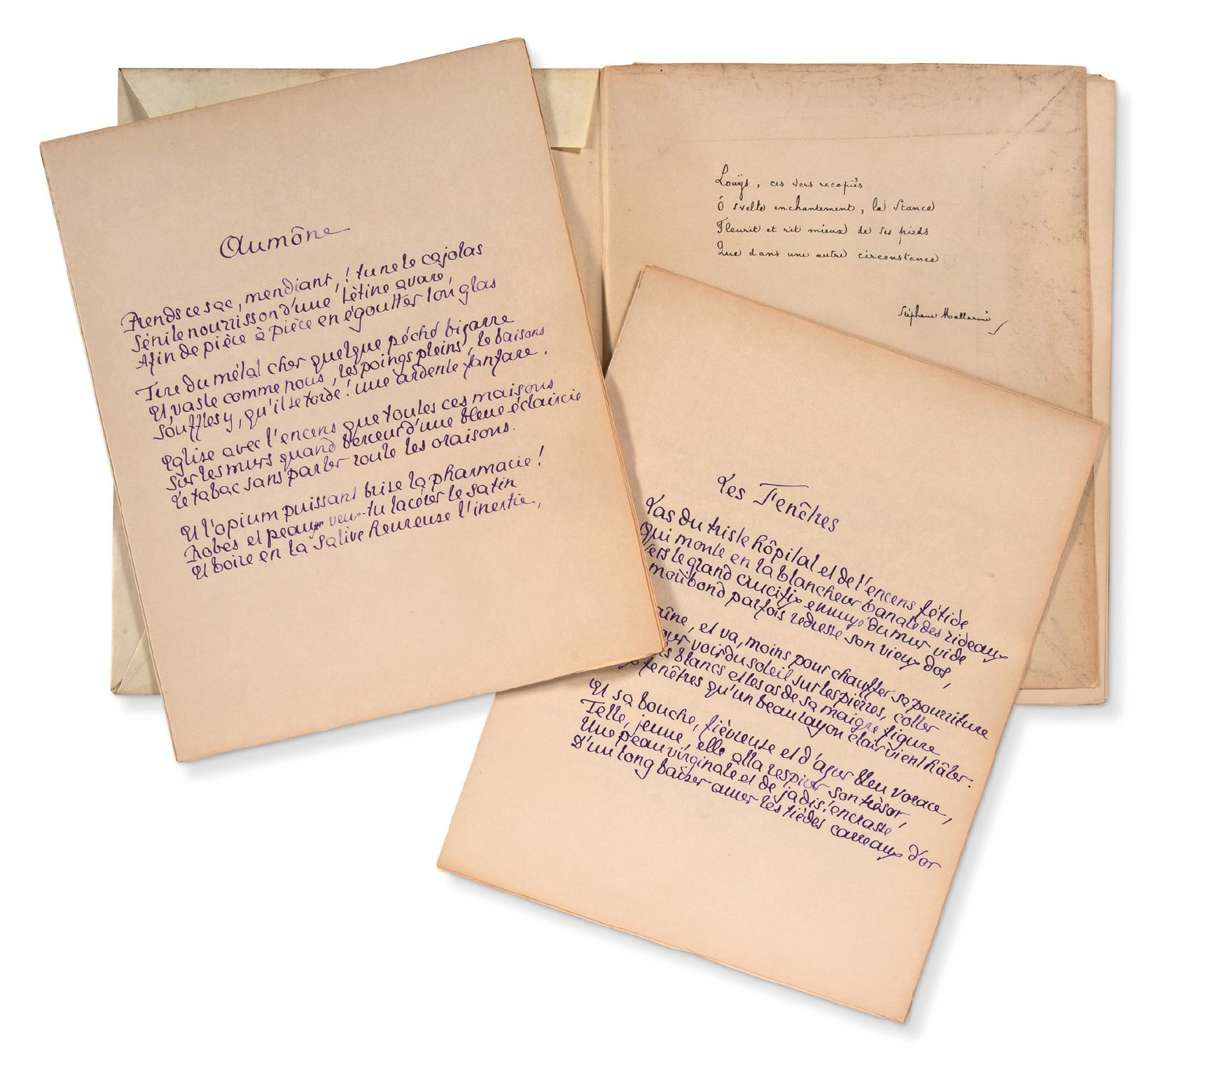 Aumône
Prends ce sac, mendiant, ! tu ne le cajolas
Sénile nourrisson d'une tétine avare,
Afin de pièce à pièce en égoutter ton glas
Tire du métal cher quelque péché bizarre
Et, vaste comme nous, les poings pleins, le baisons
Souffles y, qu'il se torde ! une ardente fanfare.
Eglise avec l'encens que toutes ces maisons
Sur les murs quand berceur d'une bleue éclaircie
Le tabac sans parler roule les oraisons.
Et l'opium puissant brise la pharmacie !
Robes et peau, veux-tu lacérer le satin
Et boire en la salive heureuse l'inertie,
Louÿs, ces vers recopiés
Ô svelte enchantement, la Stance
Fleurit et rit mieux de ses pieds
Que dans une autre circonstance
Stéphane Mallarmé
Les Fenêtres
Las du triste hôpital et de l'encens fétide
Qui monte en la blancheur banale des rideaux
Vers le grand crucifix ennuyé du mur vide
moribond parfois redresse son vieux dos,
, et va, moins pour chauffer sa pourriture
voir du soleil sur les pierres, coller
blancs et les os de sa maigre figure
fenêtres qu'un beau rayon clair vient hâler.
Et sa bouche, fiévreuse et d'azur bleu vorace,
Telle, jeune, elle alla respirer son trésor,
Une peau virginale et de jadis ! encrasse
D'un long baiser amer les tièdes carreaux d'or